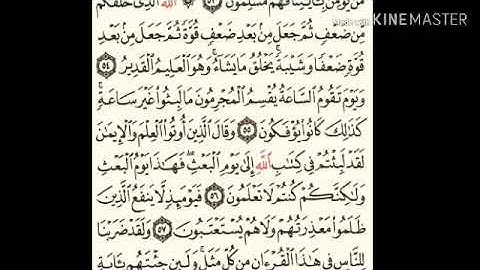 Made with
KINEMASTER
من يؤمن بـٔايـٰتنا فهم مسلمون ٥٣ ۞ ٱللَّه ٱلذى خلقكم
مِّن ضَعْفٍ ثُمَّ جَعَلَ مِنۢ بَعْدِ ضَعْفٍ قُوَّةً ثُمَّ جَعَلَ مِنۢ بَعْدِ
قُوَّةٍ ضَعْفًا وَشَيْبَةً ۚ يَخْلُقُ مَا يَشَآءُ ۖ وَهُوَ ٱلْعَلِيمُ ٱلْقَدِيرُ ٥٤
وَيَوْمَ تَقُومُ ٱلسَّاعَةُ يُقْسِمُ ٱلْمُجْرِمُونَ مَا لَبِثُوا۟ غَيْرَ سَاعَةٍ ۚ
كَذَٰلِكَ كَانُوا۟ يُؤْفَكُونَ ٥٥ وَقَالَ ٱلَّذِينَ أُوتُوا۟ ٱلْعِلْمَ وَٱلْإِيمَٰنَ
لَقَدْ لَبِثْتُمْ فِى كِتَٰبِ ٱللَّهِ إِلَىٰ يَوْمِ ٱلْبَعْثِ ۖ فَهَٰذَا يَوْمُ ٱلْبَعْثِ
وَلَٰكِنَّكُمْ كُنتُمْ لَا تَعْلَمُونَ ٥٦ فَيَوْمَئِذٍ لَّا يَنفَعُ ٱلَّذِينَ
ظَلَمُوا۟ مَعْذِرَتُهُمْ وَلَا هُمْ يُسْتَعْتَبُونَ ٥٧ وَلَقَدْ ضَرَبْنَا
لِلنَّاسِ فِى هَٰذَا ٱلْقُرْءَانِ مِن كُلِّ مَثَلٍ ۚ وَلَئِن جِئْتَهُم بِـَٔايَةٍ